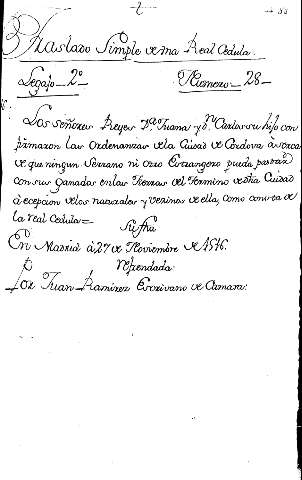 Traslado Simple de una Real Cedula.
Legajo 2º Numero 28
Los Señores Reyes Dª Juana y Dn Carlos su hijo con
firmaron las Ordenanzas dela Ciudad de Cordova à cerca
de que ningun Serrano ni Otro Estrangero pueda pastar
con sus ganados enlas tierras del termino de dha Ciudad
à ecepcion delos naturales y vezinos de ella, como consta de
la real Cedula=
Su fha
En Madrid à 27 de Noviembre de 1516.
Refrendada
Por Juan Ramirez Escrivano de Camara.